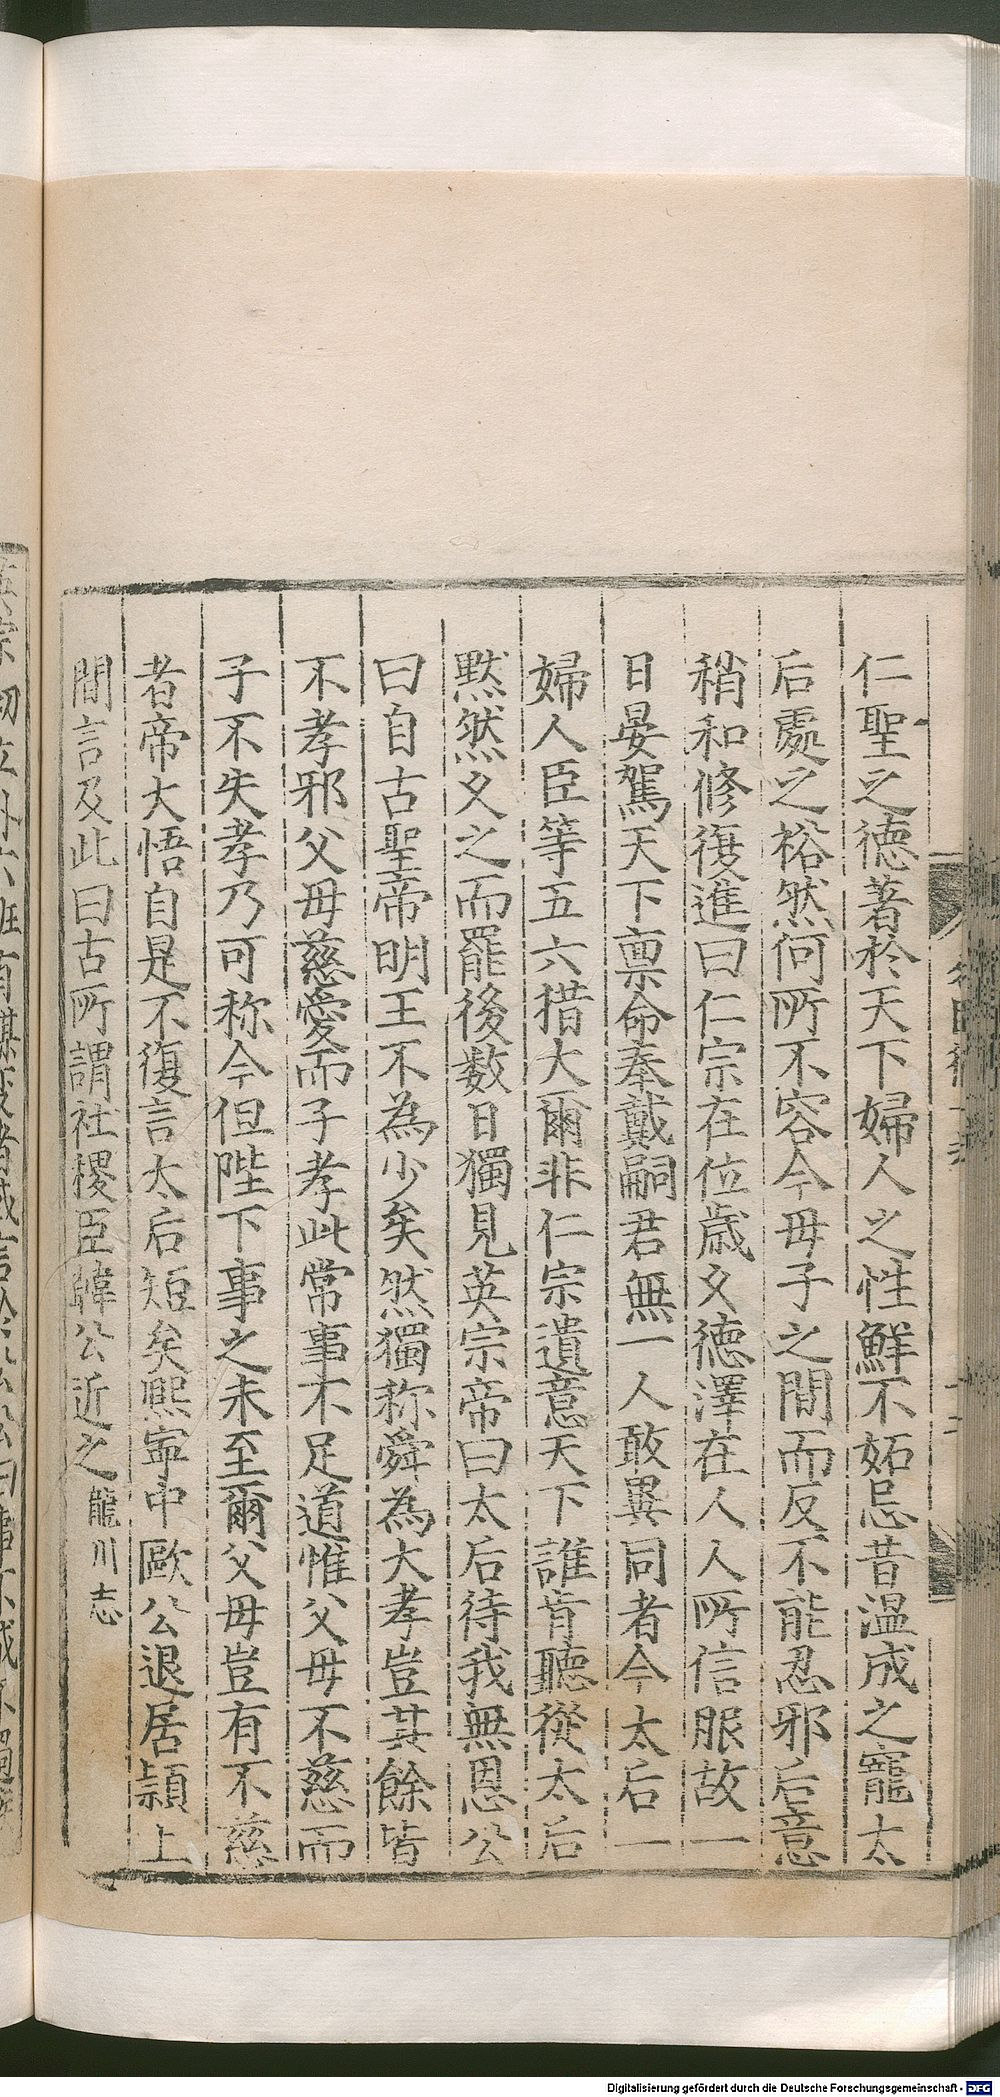 仁聖之德著於天下婦人之性鮮不妬忌昔温成之寵太
后處之裕然何所不容今母子之間而反不能忍邪后意
稍和修復進曰仁宗在位歳久德澤在人人所信服故一
日晏駕天下禀命奉戴嗣君無一人敢異同者今太后一
婦人臣等五六措大爾非仁宗遺意天下誰肯聽從太后
黙然久之而罷後数日獨見英宗帝曰太后待我無恩公
曰自古聖帝明王不為少矣然獨称舜為大孝豈其餘皆
不孝邪父母慈愛而子孝此常事不足道惟父母不慈而
子不失孝乃可称今但陛下事之未至爾父母豈有不慈
者帝大悟自是不復言太后短矣熈寧中歐公退居潁上
間言及此曰古所謂社稷臣韓公近之龍川志
Digitalisierung gefördert durch die Deutsche Forschungsgemeinschaft - DFG